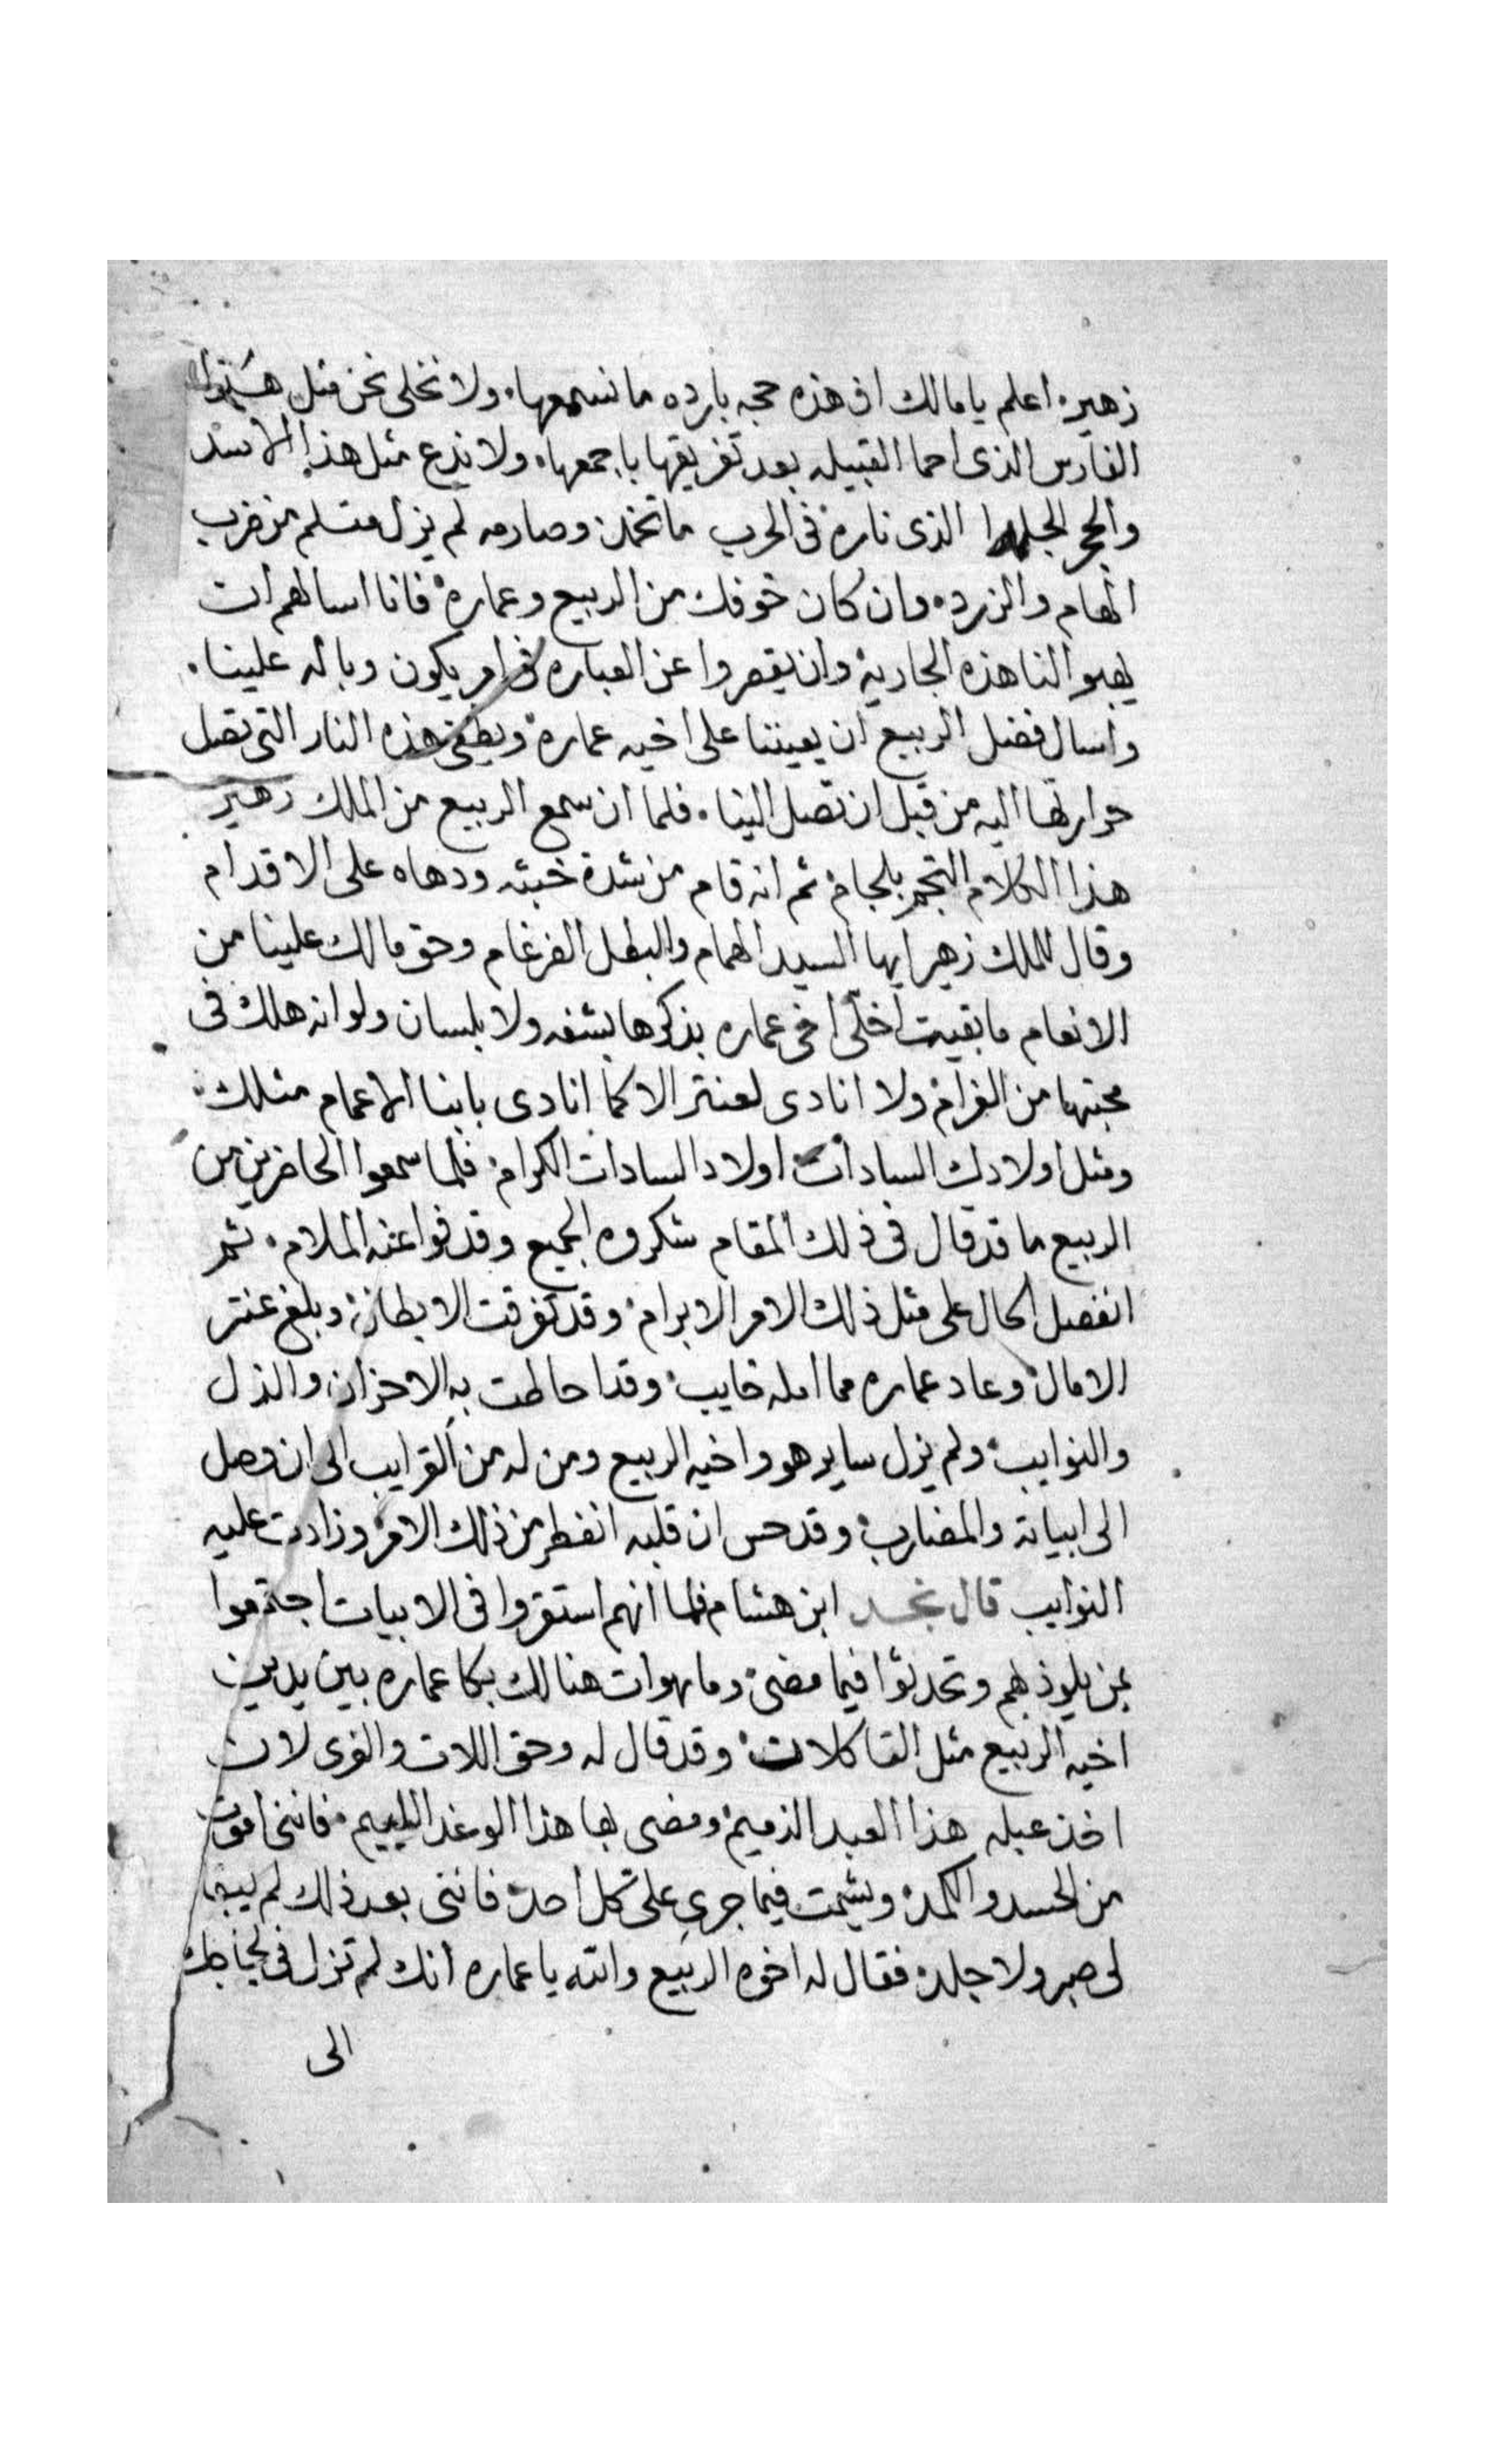 زهير، اعلم يا مالك ان هذه حجه بارده ما نسمعها، ولا نخلي نحن مثل هذا
الفارس الذى احما القبيله بعد تفريقها باجمعها، ولا ندع مثل هذا الاسد
والحجر الجلمد الذى ناره فى الحرب ما تخمد وصارمه لم يزل متسلم من ضرب
الهام والزرد، وان كان خوفك من الربيع وعماره فانا اسالهم ان
يهبوا لنا هذه الجارية وان يقصروا عن العباره فى امر يكون وباله علينا،
واسال فضل الربيع ان يعيننا على اخيه عماره ويطفى هذه النار التى تصل
حرارتها اليه من قبل ان تصل الينا، فلما ان سمع الربيع من الملك زهير
هذا الكلام التجم بلجام ثم انه قام من شدة خبثه ودهاه على الاقدام
وقال للملك زهير ايها السيد الهمام والبطل الضرغام وحق مالك علينا من
الانعام ما بقيت اخلّى اخى عماره يذكرها بشفه ولا بلسان ولو انه هلك فى
محبتها من الغرام ولا انادى لعنتر الا كما انادى يا بنا الاعمام مثلك
ومثل اولادك السادات اولاد السادات الكرام، فلما سمعوا الحاضرين من
الربيع ما قد قال فى ذلك المقام شكروه الجميع وقد فوا عنه الملام، ثم
انفصل الحال على مثل ذلك الامر الابرام، وقد تفرقت الابطال، وبلغ عنتر
الامال، وعاد عماره مما امله خايب، وقد احاطت به الاحزان والذل
والنوايب، ولم يزل ساير هو واخيه الربيع ومن له من القرايب الى ان وصل
الى ابياته والمضارب، وقد حس ان قلبه انفطر من ذلك الامر وزادت عليه
النوايب قال نجد ابن هشام فلما انهم استقروا فى الابيات اجتمعوا
بمن يلوذ بهم وتحدثوا فيما مضى وما هوات هنالك بكا عماره بين يدين
اخيه الربيع مثل الثاكلات، وقد قال له وحق اللات والعزى لان
اخذ عبله هذا العبد الذميم ومضى بها هذا الوغد الليم فاننى اموت
من الحسد والكمد، ويشمت فيما جرى علىّ كل احد، فاننى بعد ذلك لم يبقا
لى صبر ولا جلد، فقال له اخوه الربيع والله يا عماره انك لم تزل فى لجاجك
الى